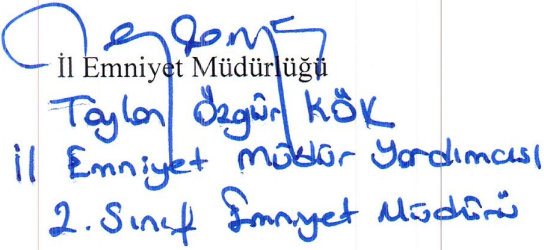 İl Emniyet Müdürlüğü
Taylan Özgür KÖK
İl Emniyet Müdür Yardımcısı
2. Sınıf Emniyet Müdürü